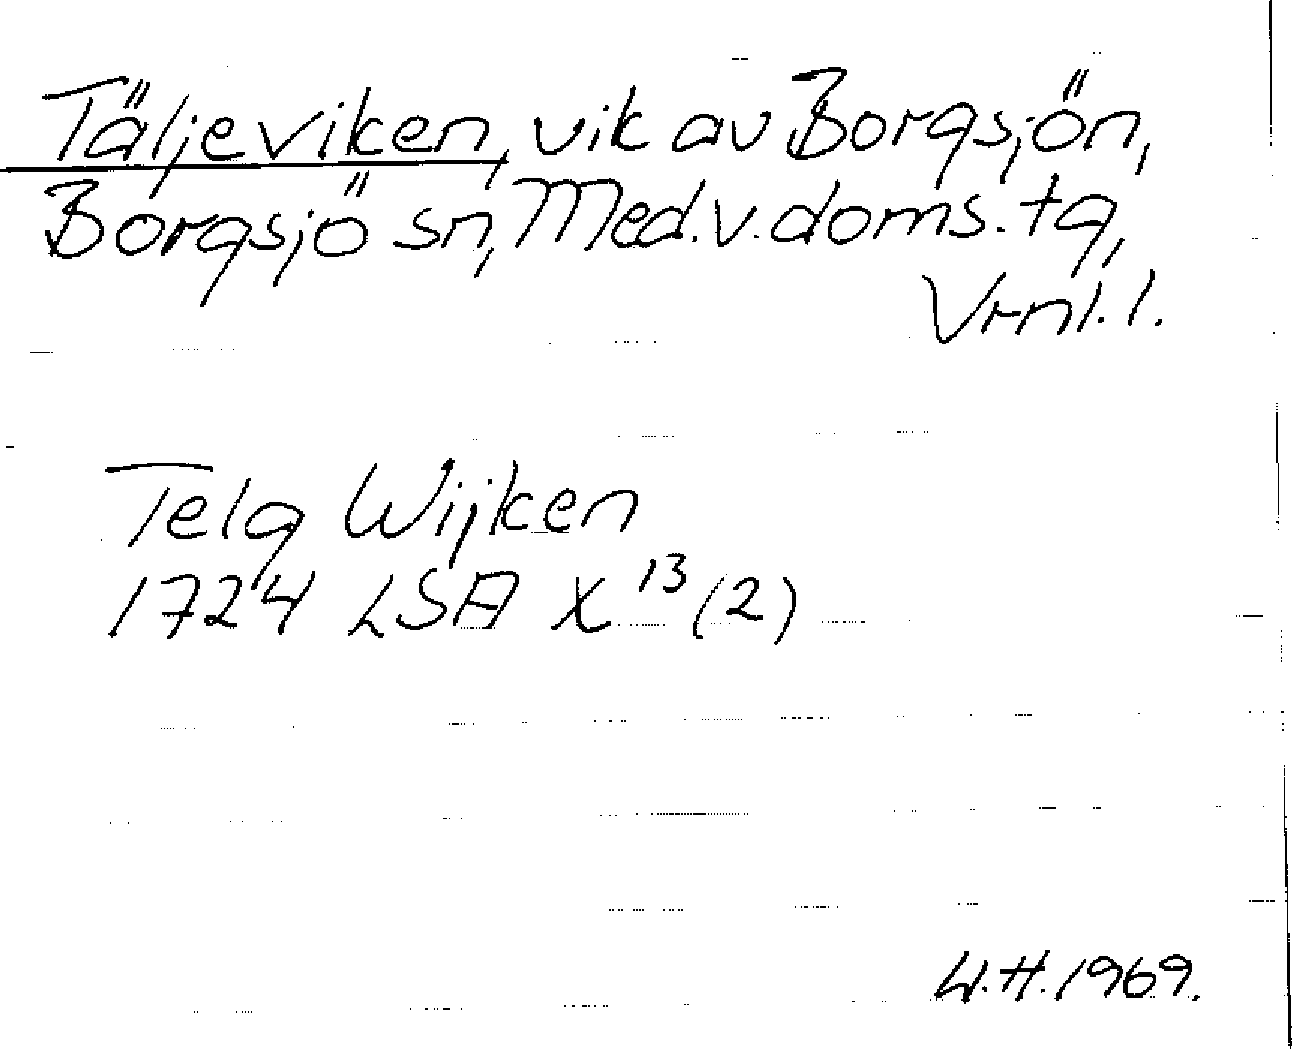 Täljeviken, vik av Borgsjön,
Borgsjö sn, Med.v.doms.tg,
Vrnl.l.
Telg Wijken
1724 LSA X¹³(2)
W.H.1969.